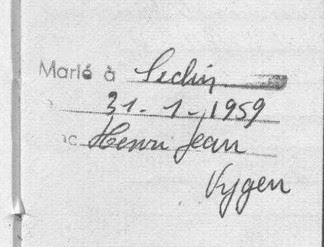 Marié à Seclin
31-1-1959
Henri Jean
Vygen